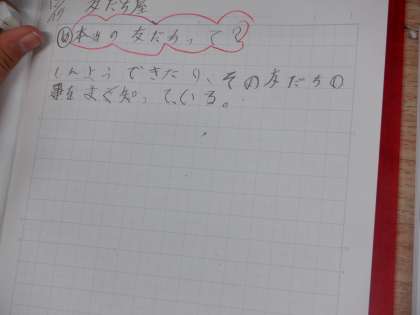 12/19 友だち屋
め 本当の友だちって?
しんようできたり、その友だちの
事をよく知っている。